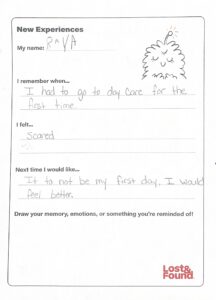 New Experiences
My name: RAVA
I remember when...
I had to go to day care for the
first time.
I felt...
scared
Next time I would like...
It to not be my first day. I would
feel better.
Draw your memory, emotions, or something you're reminded of!
Lost&
Found